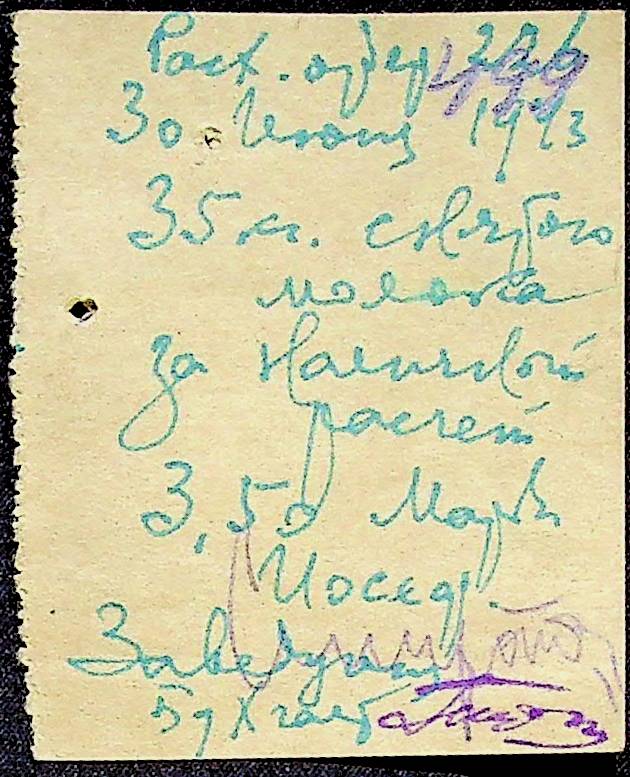 Расх. ордер 326
499
30 Июня 1943
35 кг. снятого
молока
за наличный
расчет
3,50 Марк
Иосеф
Заведующ
Бухгалт